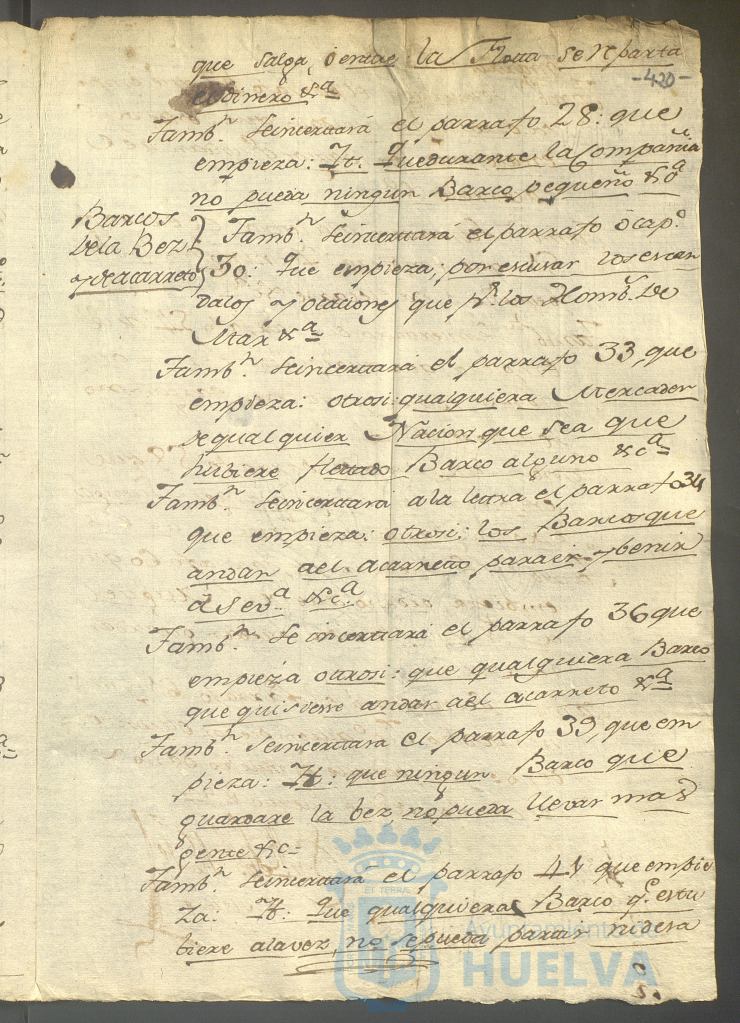 que salga, o entre la Flota se reparta
-420-
el dinero &ª
Tambⁿ. seincertará el parrafo 28: que
empieza: It. Quedurante la Compañia
no pueda ningun Barco pequeño &ª
Barcos
dela Bez,
y de acarreto
Tambⁿ. seincertará el parrafo o cap.º
30: que empieza, por escusar los escan
dalos y ocaciones que pr. los Homb.s de
Mar &ª
Tambⁿ. seincertará el parrafo 33, que
empieza: otrosi: qualquiera Mercader
de qualquier Nacion que sea que
hubiere fletado Barco alguno &cª
Tambⁿ. seincertará a la letra el parrafo 34
que empieza: otrosi: los Barcos que
andan ael acarreto para ir y benir
a Sevª. &cª
Tambⁿ. se incertará el parrafo 36 que
empieza otrosi: que qualquiera Barco
que quisiere andar ael acarreto &ª
Tambⁿ. seincertara el parrafo 39, que em
pieza: It: que ningun Barco que
guardare la bez, no pueda llevar mas
gente &c=
Tambⁿ. seincertará el parrafo 41 que empie
za: It: Que qualquiera Barco q.e estu
biere ala vez, no se pueda partir ni dexa
ET TERRÆ
Ayuntamiento de
HUELVA